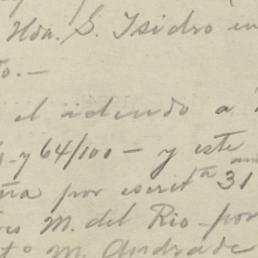 Hda. S. Isidro en
to.—
el adeudo a
y 64/100 — y este
por escrita 31
M. del Rio - por
to M. Andrade